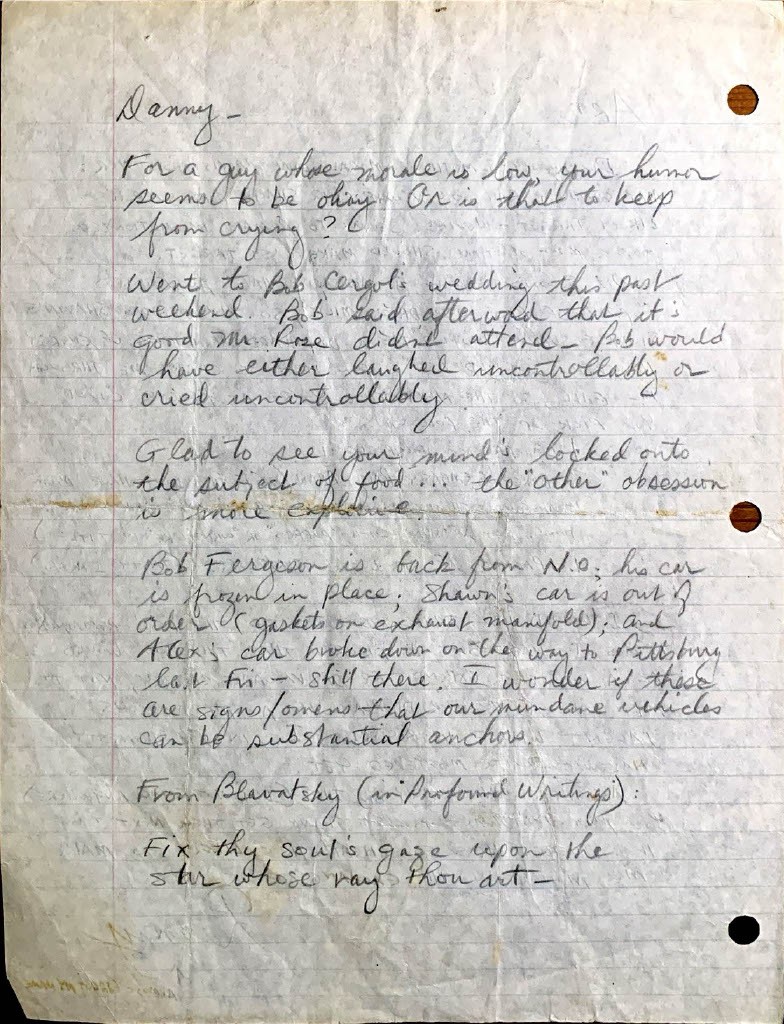 Danny -
For a guy whose morale is low, your humor
seems to be okay. Or is that to keep
from crying?
Went to Bob Cergol's wedding this past
weekend. Bob said afterword that it's
good Mr. Rose didn't attend - Bob would
have either laughed uncontrollably or
cried uncontrollably.
Glad to see your mind's locked onto
the subject of food.... the "other" obsession
is more explosive.
Bob Fergeson is back from N.O.; his car
is frozen in place; Shawn's car is out of
order (gaskets on exhaust manifold); and
Alex's car broke down on the way to Pittsburg
last Fri - still there. I wonder if these
are signs/omens that our mundane vehicles
can be substantial anchors.
From Blavatsky (in Profound Writings):
Fix thy soul's gaze upon the
star whose ray thou art -